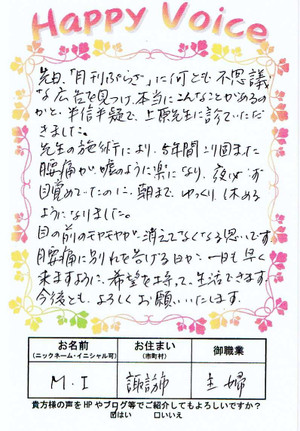 Happy Voice
先日、「月刊ぷらざ」に何とも不思議
な広告を見つけ、本当にこんなことがあるの
かと、半信半疑で、上原先生に診ていただ
きました。
先生の施術により、5年間こり固まった
腰痛が嘘のように楽になり、夜必ず
目覚めていたのに、朝まで、ゆっくり休める
ようになりました。
目の前のモヤモヤが消えてなくなる思いです
腰痛に別れを告げる日が一日も早く
来ますように、希望を持って、生活できます。
今後とも、よろしくお願いいたします。
お名前
(ニックネーム・イニシャル可)
お住まい
(市町村)
御職業
M.I
諏訪市
主婦
貴方様の声をHPやブログ等でご紹介してもよろしいですか?
はい □いいえ